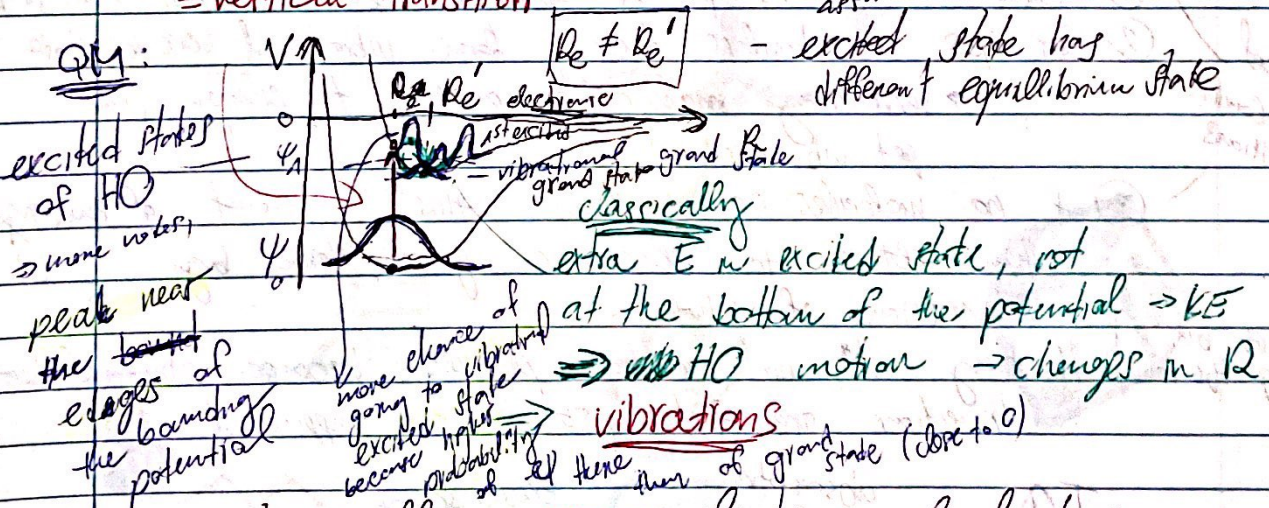 = vertical transition
QM:
V
Re ≠ Re'
- excited state has
different equillibrium state
Re, Re' electronic
0
1st excited
R
excited states
of HO
ψ1
- vibrational
grond state
grond state
=> more nodes,
ψ0
peak near
the
edges of
the
bounding
potential
classically
extra E in excited state, not
at the bottom of the potential => KE
=> HO motion → changes in R
=> vibrations
more chance of
going to vibrational
excited state
because higher
probability
of el there
than of grond state (close to 0)